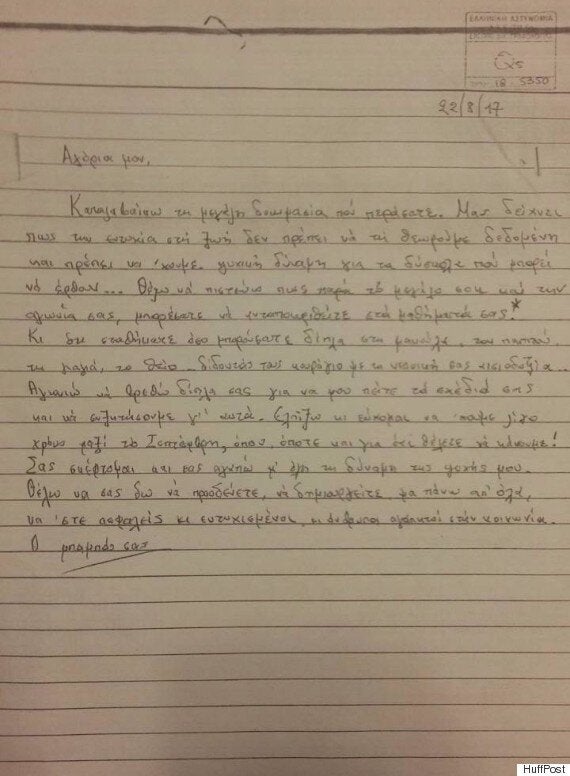 ΕΛΛΗΝΙΚΗ ΑΣΤΥΝΟΜΙΑ
18 - 5350
22/8/17
Αγόρια μου,
Καταλαβαίνω τη μεγάλη δοκιμασία πού περάσατε. Μας δείχνει
πως την ευτυχία στή ζωή δεν πρέπει νά τή θεωρούμε δεδομένη
και πρέπει να 'χουμε ψυχική δύναμη για τα δύσκολα πού μπορεί
νά έρθουν... Θέλω νά πιστεύω πως παρά τό μεγάλο σοκ καί την
αγωνία σας, μπορέσατε νά ανταποκριθείτε στά μαθήματά σας.*
Κι αν σταθήκατε όσο μπορούσατε δίπλα στη μανούλα, τον παππού,
τη γιαγιά, το θείο... δίδοντάς τους κουράγιο με τη νεανική σας αισιοδοξία...
Αγωνιώ νά βρεθώ δίπλα σας για να μου πείτε τά σχέδιά σας
και νά συζητήσουμε γι' αυτά. Ελπίζω κι εύχομαι να 'χαμε λίγο
χρόνο μαζί το Σεπτέμβρη, όπου, όποτε και για ό,τι θέλετε νά κάνουμε!
Σας σκέφτομαι και σας αγαπώ μ' όλη τη δύναμη της ψυχής μου.
Θέλω να σας δω νά προοδεύετε, νά δημιουργείτε μα πάνω απ' όλα,
να 'στε ασφαλείς κι ευτυχισμένοι, κι άνθρωποι αγαπητοί στήν κοινωνία.
Ο μπαμπάς σας
HuffPost